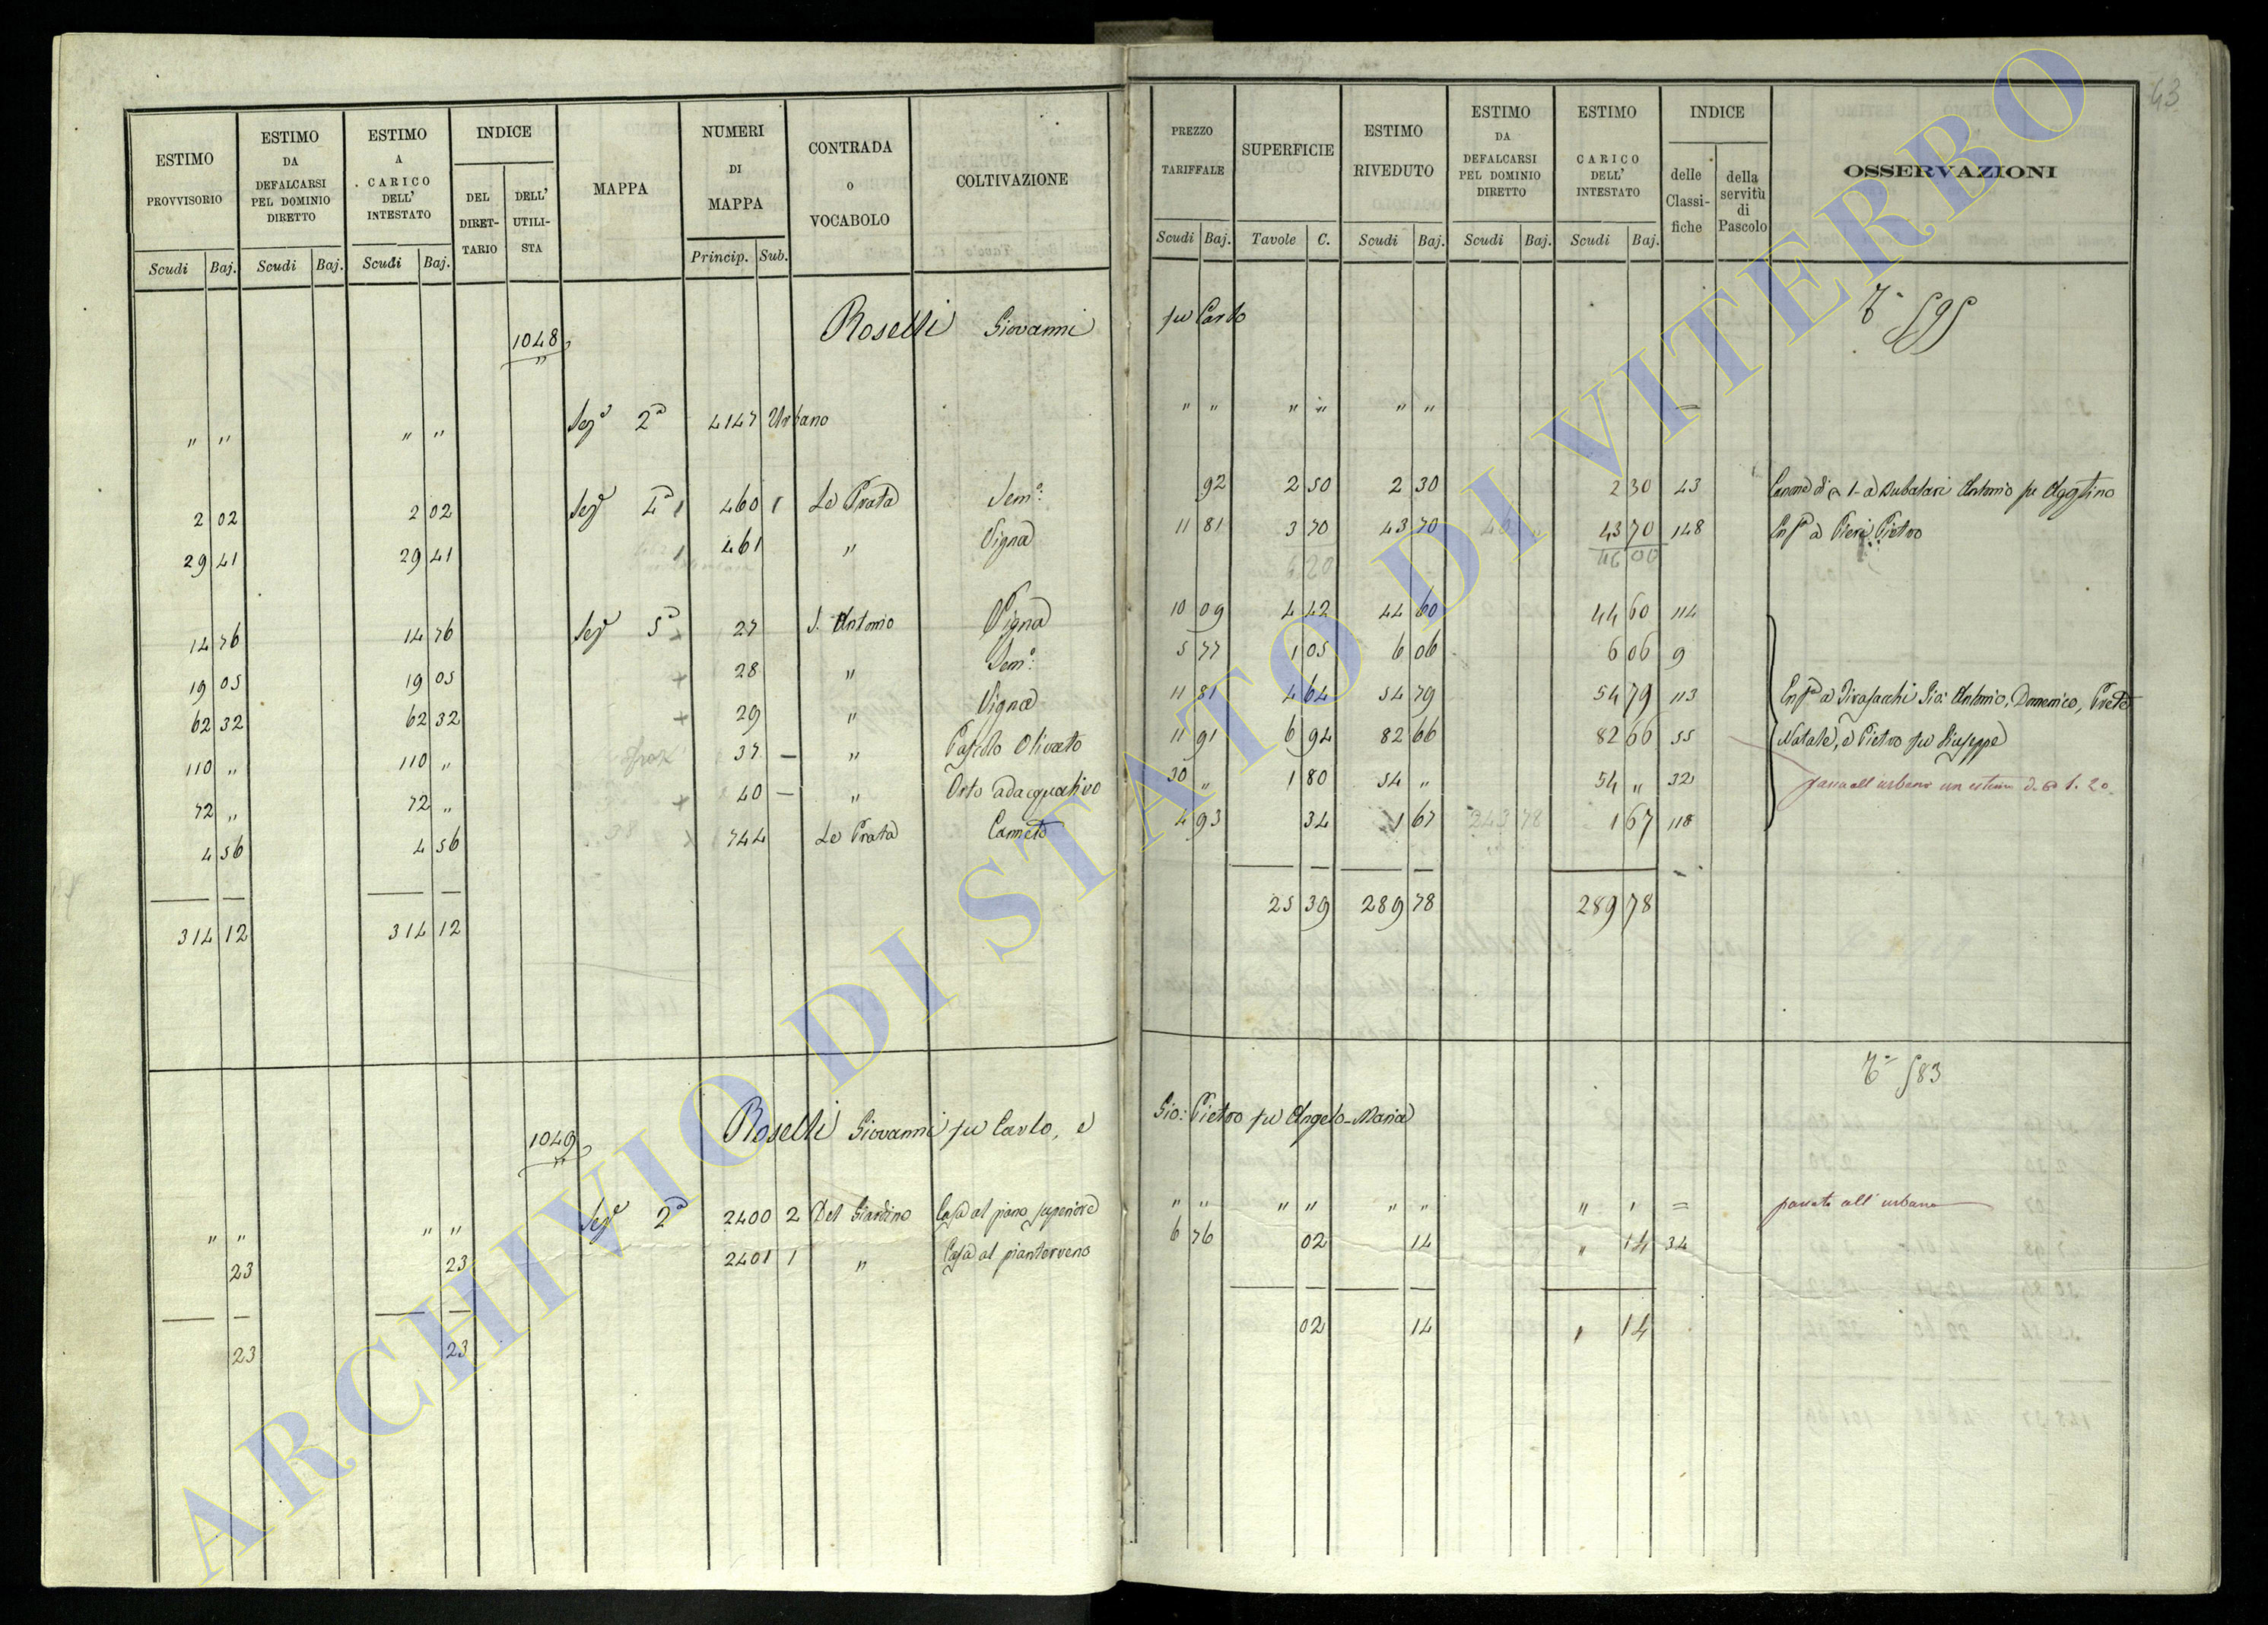 43
ESTIMO PROVVISORIO | ESTIMO DA DEFALCARSI PEL DOMINIO DIRETTO | ESTIMO A CARICO DELL' INTESTATO | INDICE DEL DIRETTARIO | DELL' UTILISTA | MAPPA | NUMERI DI MAPPA | CONTRADA O VOCABOLO | COLTIVAZIONE | PREZZO TARIFFALE | SUPERFICIE | ESTIMO RIVEDUTO | ESTIMO DA DEFALCARSI PEL DOMINIO DIRETTO | ESTIMO CARICO DELL' INTESTATO | INDICE delle Classifiche | della servitù di Pascolo | OSSERVAZIONI
Scudi Baj. | Scudi Baj. | Scudi Baj. | Princip. Sub. | Scudi Baj. | Tavole C. | Scudi Baj. | Scudi Baj. | Scudi Baj.
1048 Roselli Giovanni fu Carlo
" " | " " | Sezе 2a | 4147 | Urbano | " " | " " | " " | =
2 02 | 2 02 | 460 1 | Le Prata | Semo: | 92 | 2 50 | 2 30 | 2 30 | 43 | Antonio fu
29 41 | 29 41 | 461 | " | Vigna | 11 81 | 3 70 | 43 70 | 43 70 | 148 | a Pieri Pietro
6 20 | 46 00
14 76 | 14 76 | Sezе 5a | 27 | S. Antonio | Vigna | 10 09 | 4 42 | 44 60 | 44 60 | 114
19 05 | 19 05 | 28 | " | Semo: | 5 77 | 1 05 | 6 06 | 6 06 | 9
62 32 | 62 32 | 29 | " | Vigna | 11 81 | 4 64 | 54 79 | 54 79 | 113 | Gio: Antonio, Domenico,
110 " | 110 " | 37 — | " | Pascolo Olivato | 11 91 | 6 94 | 82 66 | 82 66 | 55 | Natale, e Pietro fu Giuseppe
72 " | 72 " | 40 — | " | Orto adacquativo | 30 " | 1 80 | 54 " | 54 " | 32 | passa all'urbano un estimo di 1.20
4 56 | 4 56 | 744 | Le Prata | Canneto | 4 93 | 34 | 1 67 | 243 78 | 1 67 | 118
314 12 | 314 12 | 25 39 | 289 78 | 289 78
583
1049 Roselli Giovanni fu Carlo, e Gio: Pietro fu Angelo-Maria
" " | " " | Sezе 2a | 2400 2 | Del Giardino | Casa al piano superiore | " " | " " | " " | " " | = | passato all'urbano
23 | 23 | 2401 1 | " | Casa al pianterreno | 6 76 | 02 | 14 | " 14 | 34
23 | 23 | 02 | 14 | 14
ARCHIVIO DI STATO DI VITERBO